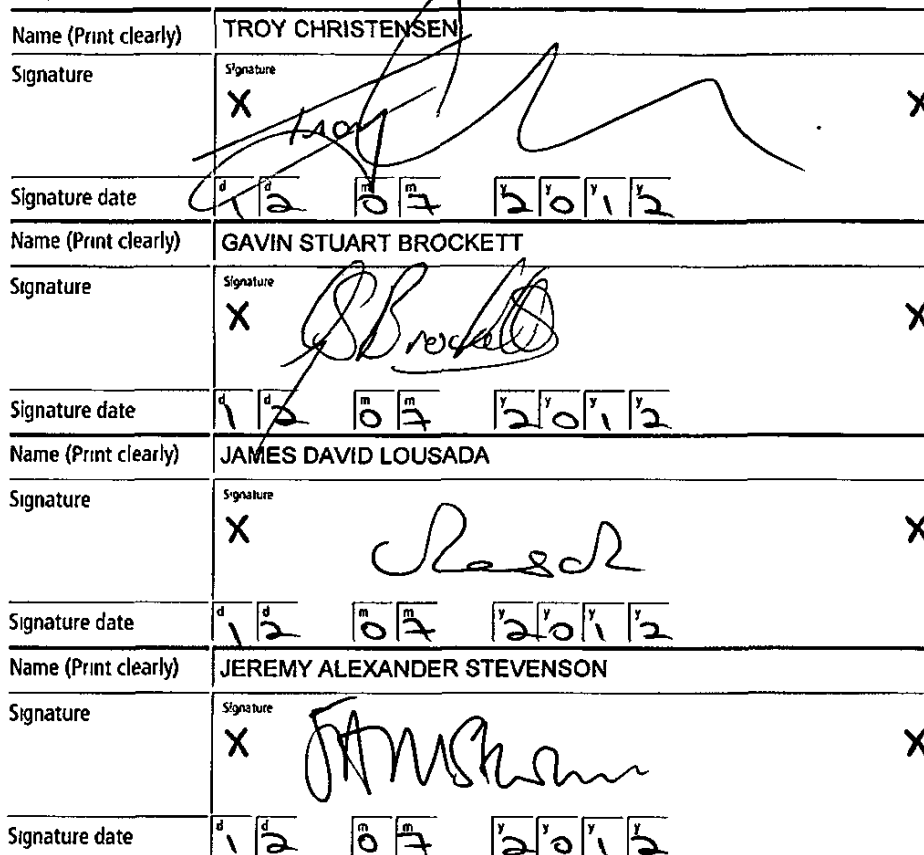 Name (Print clearly) TROY CHRISTENSEN
Signature Signature
X X
Troy
Signature date d d m m y y y y
12 07 2012
Name (Print clearly) GAVIN STUART BROCKETT
Signature Signature
X X
GSBrockett
Signature date d d m m y y y y
12 07 2012
Name (Print clearly) JAMES DAVID LOUSADA
Signature Signature
X X
Signature date d d m m y y y y
12 07 2012
Name (Print clearly) JEREMY ALEXANDER STEVENSON
Signature Signature
X X
Signature date d d m m y y y y
12 07 2012